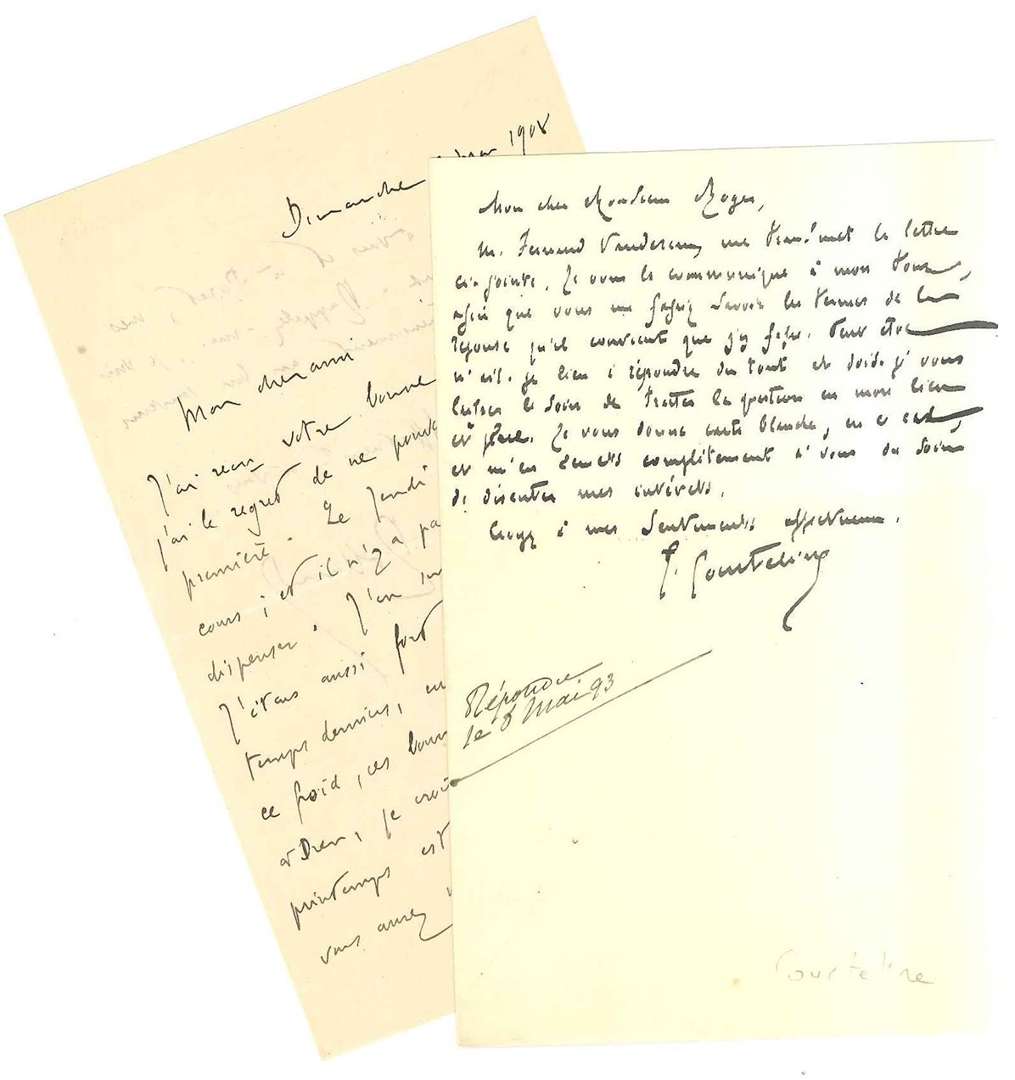 Dimanche mars 1908
Mon cher ami
J'ai reçu votre bonne
j'ai le regret de ne pouvo
première. Le Jeudi
cours ; et il n'y a pa
dispenser. J'en su
J'étais aussi fort
temps derniers, en
ce froid, ces bour
à Dieu, je croi
printemps est
vous aurez
Mon cher Monsieur Roger,
M. Fernand Vanderem, me transmet la lettre
ci-jointe. Je vous la communique à mon tour,
afin que vous me fassiez savoir les termes de la
réponse qu'il convient que j'y fasse. Peut être
n'est-je lieu à répondre du tout et dois-j' vous
laisser le soin de traiter la question en mon lieu
et place. Je vous donne carte blanche, en ce cas,
et m'en remets complètement à vous du soin
de discuter mes intérêts.
Croyez à mes sentiments affectueux.
G. Courteline
Répondu
le 8 Mai 93
Courteline